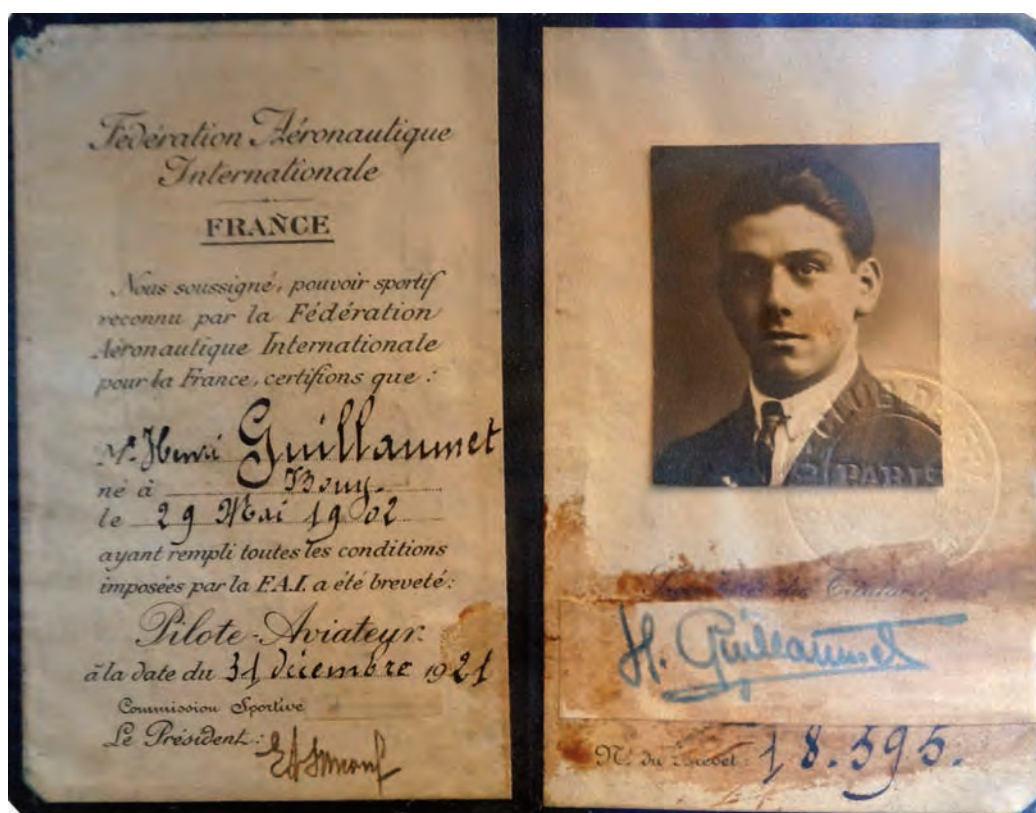 Fédération Aéronautique
Internationale
FRANCE
Nous soussigné, pouvoir sportif
reconnu par la Fédération
Aéronautique Internationale
pour la France, certifions que :
Mr. Henri Guillaumet
né à Bouy.
le 29 Mai 1902
ayant rempli toutes les conditions
imposées par la F.A.I. a été breveté :
Pilote-Aviateur.
à la date du 31 décembre 1921
Commission Sportive
Le Président :
PARIS
du Titulaire
H. Guillaumet
No. du Brevet : 18.595.